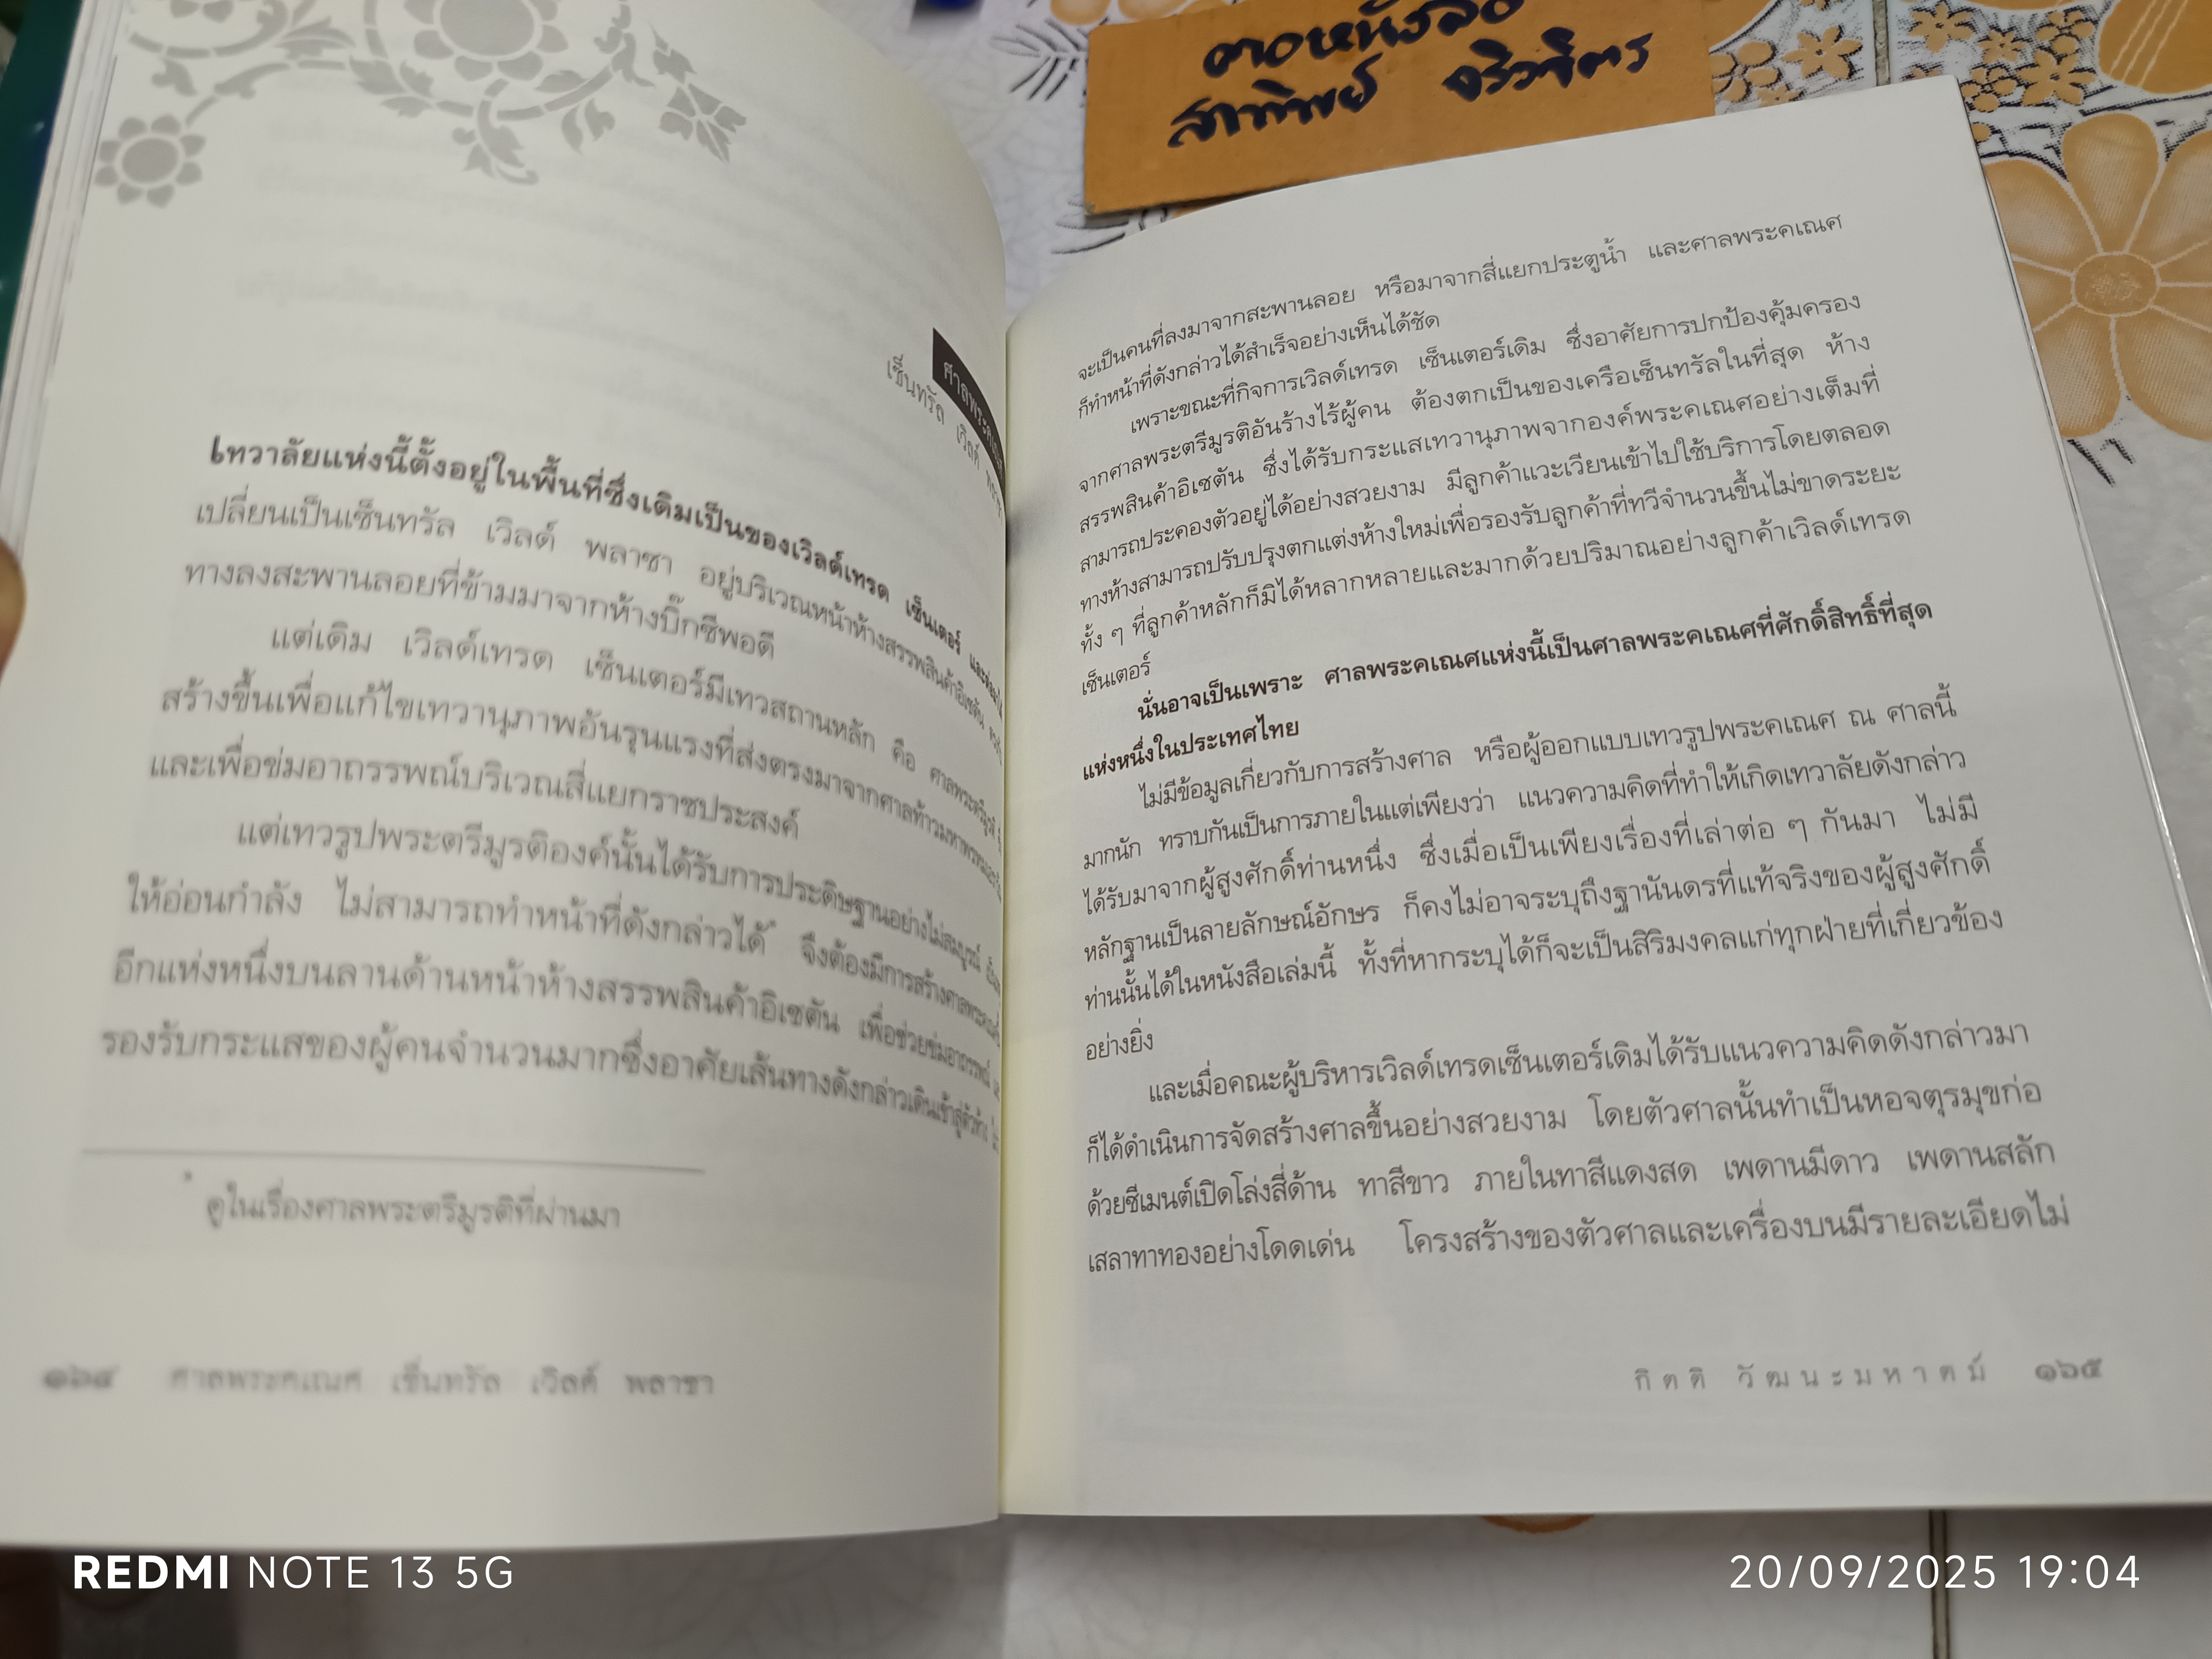 ศาลพระคเณศ
เซ็นทรัล เวิลด์ พลาซา
เทวาลัยแห่งนี้ตั้งอยู่ในพื้นที่ซึ่งเดิมเป็นของเวิลด์เทรด เซ็นเตอร์
เปลี่ยนเป็นเซ็นทรัล เวิลด์ พลาซา อยู่บริเวณหน้าห้างสรรพสินค้าอิเซตัน
ทางลงสะพานลอยที่ข้ามมาจากห้างบิ๊กซีพอดี
แต่เดิม เวิลด์เทรด เซ็นเตอร์มีเทวสถานหลัก คือ ศาลพระตรีมูรติ
สร้างขึ้นเพื่อแก้ไขเทวานุภาพอันรุนแรงที่ส่งตรงมาจากศาลท้าวมหาพรหม
และเพื่อข่มอาถรรพณ์บริเวณสี่แยกราชประสงค์
แต่เทวรูปพระตรีมูรติองค์นั้นได้รับการประดิษฐานอย่างไม่สมบูรณ์
ให้อ่อนกำลัง ไม่สามารถทำหน้าที่ดังกล่าวได้* จึงต้องมีการสร้างศาลพระคเณศ
อีกแห่งหนึ่งบนลานด้านหน้าห้างสรรพสินค้าอิเซตัน เพื่อช่วยข่มอาถรรพณ์
รองรับกระแสของผู้คนจำนวนมากซึ่งอาศัยเส้นทางดังกล่าวเดินเข้าสู่ตัวห้าง
* ดูในเรื่องศาลพระตรีมูรติที่ผ่านมา
๑๖๔ ศาลพระคเณศ เซ็นทรัล เวิลด์ พลาซา
จะเป็นคนที่ลงมาจากสะพานลอย หรือมาจากสี่แยกประตูน้ำ และศาลพระคเณศ
ก็ทำหน้าที่ดังกล่าวได้สำเร็จอย่างเห็นได้ชัด
เพราะขณะที่กิจการเวิลด์เทรด เซ็นเตอร์เดิม ซึ่งอาศัยการปกป้องคุ้มครอง
จากศาลพระตรีมูรติอันร้างไร้ผู้คน ต้องตกเป็นของเครือเซ็นทรัลในที่สุด ห้าง
สรรพสินค้าอิเซตัน ซึ่งได้รับกระแสเทวานุภาพจากองค์พระคเณศอย่างเต็มที่
สามารถประคองตัวอยู่ได้อย่างสวยงาม มีลูกค้าแวะเวียนเข้าไปใช้บริการโดยตลอด
ทางห้างสามารถปรับปรุงตกแต่งห้างใหม่เพื่อรองรับลูกค้าที่ทวีจำนวนขึ้นไม่ขาดระยะ
ทั้ง ๆ ที่ลูกค้าหลักก็มิได้หลากหลายและมากด้วยปริมาณอย่างลูกค้าเวิลด์เทรด
เซ็นเตอร์
นั่นอาจเป็นเพราะ ศาลพระคเณศแห่งนี้เป็นศาลพระคเณศที่ศักดิ์สิทธิ์ที่สุด
แห่งหนึ่งในประเทศไทย
ไม่มีข้อมูลเกี่ยวกับการสร้างศาล หรือผู้ออกแบบเทวรูปพระคเณศ ณ ศาลนี้
มากนัก ทราบกันเป็นการภายในแต่เพียงว่า แนวความคิดที่ทำให้เกิดเทวาลัยดังกล่าว
ได้รับมาจากผู้สูงศักดิ์ท่านหนึ่ง ซึ่งเมื่อเป็นเพียงเรื่องที่เล่าต่อ ๆ กันมา ไม่มี
หลักฐานเป็นลายลักษณ์อักษร ก็คงไม่อาจระบุถึงฐานันดรที่แท้จริงของผู้สูงศักดิ์
ท่านนั้นได้ในหนังสือเล่มนี้ ทั้งที่หากระบุได้ก็จะเป็นสิริมงคลแก่ทุกฝ่ายที่เกี่ยวข้อง
อย่างยิ่ง
และเมื่อคณะผู้บริหารเวิลด์เทรดเซ็นเตอร์เดิมได้รับแนวความคิดดังกล่าวมา
ก็ได้ดำเนินการจัดสร้างศาลขึ้นอย่างสวยงาม โดยตัวศาลนั้นทำเป็นหอจตุรมุขก่อ
ด้วยซีเมนต์เปิดโล่งสี่ด้าน ทาสีขาว ภายในทาสีแดงสด เพดานมีดาว เพดานสลัก
เสลาทาทองอย่างโดดเด่น โครงสร้างของตัวศาลและเครื่องบนมีรายละเอียดไม่
กิตติ วัฒนะมหาตม์ ๑๖๕
REDMI NOTE 13 5G
20/09/2025 19:04